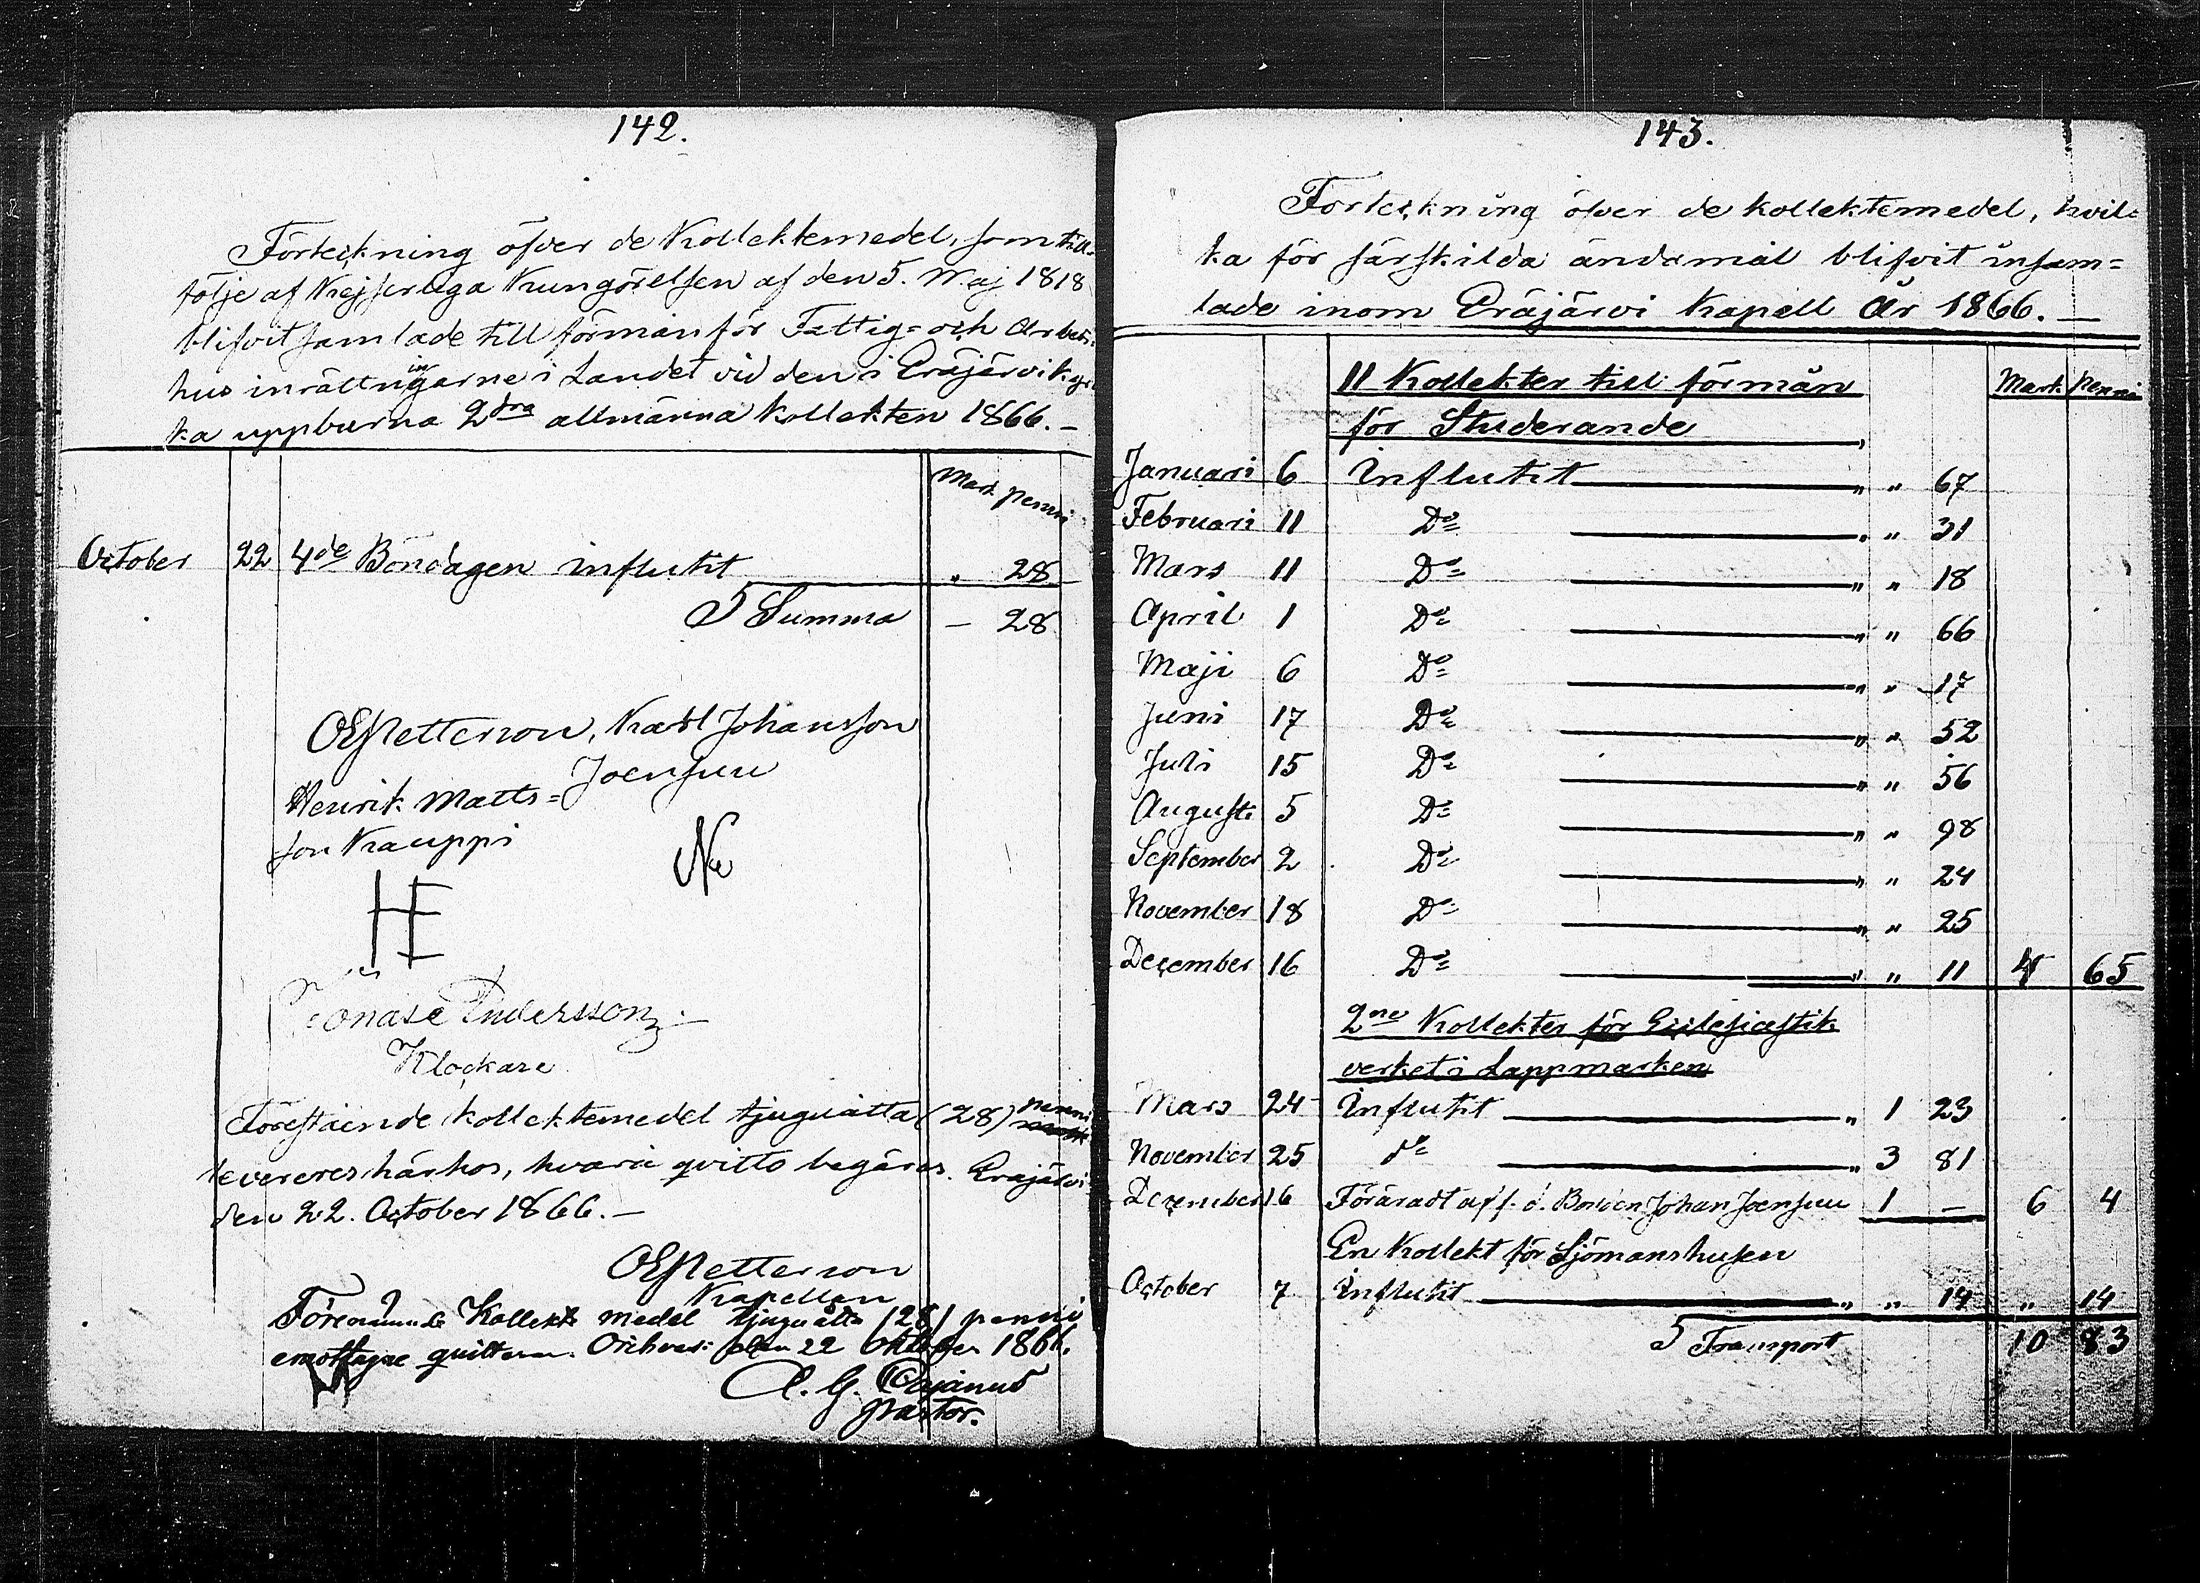 142.
Förteckning öfver de Kollektemedel, som till-
följe af Kejserliga Kungörelsen af den 5. Maj 1818
blifvit samlade till förmån för Fattig- och Arbets-
hus inrättningarne i Landet vid den i Eräjärvi kyr-
ka uppburna 2dra allmänna kollekten 1866. –
Mark penni
October 22 4de Böndagen influtit " 28
S Summa – 28
OEPetterson, Karl Johansson
Joensuu
Henrik Matts=
son Kauppi
HE
Jonas Anderssonz.
Klockare
Förestående kollektemedel tjuguåtta (28) penni
levereres härhos, hvarå qvitto begäres. Eräjärvi
den 22. October 1866. –
OEPetterson
Kapellan
Förenämnde Kollekt medel tjuguåtta (28) penni
emottagne quitteras. Orihvesi den 22 Oktober 1866.
A. G. Cajanus
pastor.
143.
Förteckning öfver de kollektemedel, hvil=
ka för särskilda ändamål blifvit insam=
lade inom Eräjärvi Kapell År 1866. —
11 Kollekter till förmån Mark penni
för Studerande
Januari 6 Influtit " " 67
Februari 11 Do " " 31
Mars 11 Do " " 18
April 1 Do " " 66
Maji 6 Do " " 17
Juni 17 Do " " 52
Juli 15 Do " " 56
Augusti 5 Do " " 98
September 2 Do " " 24
November 18 Do " " 25
December 16 Do " " 11 4 65
2ne Kollekter för Ecclesiastik
verket i Lappmarken
Mars 24 Influtit " 1 23
November 25 do " 3 81
December 16 Föräradt af f. d. Bonden Johan Joensuu 1 – 6 4
En Kollekt för Sjömanshusen
October 7 Influtit " " 14 " 14
S Transport 10 83